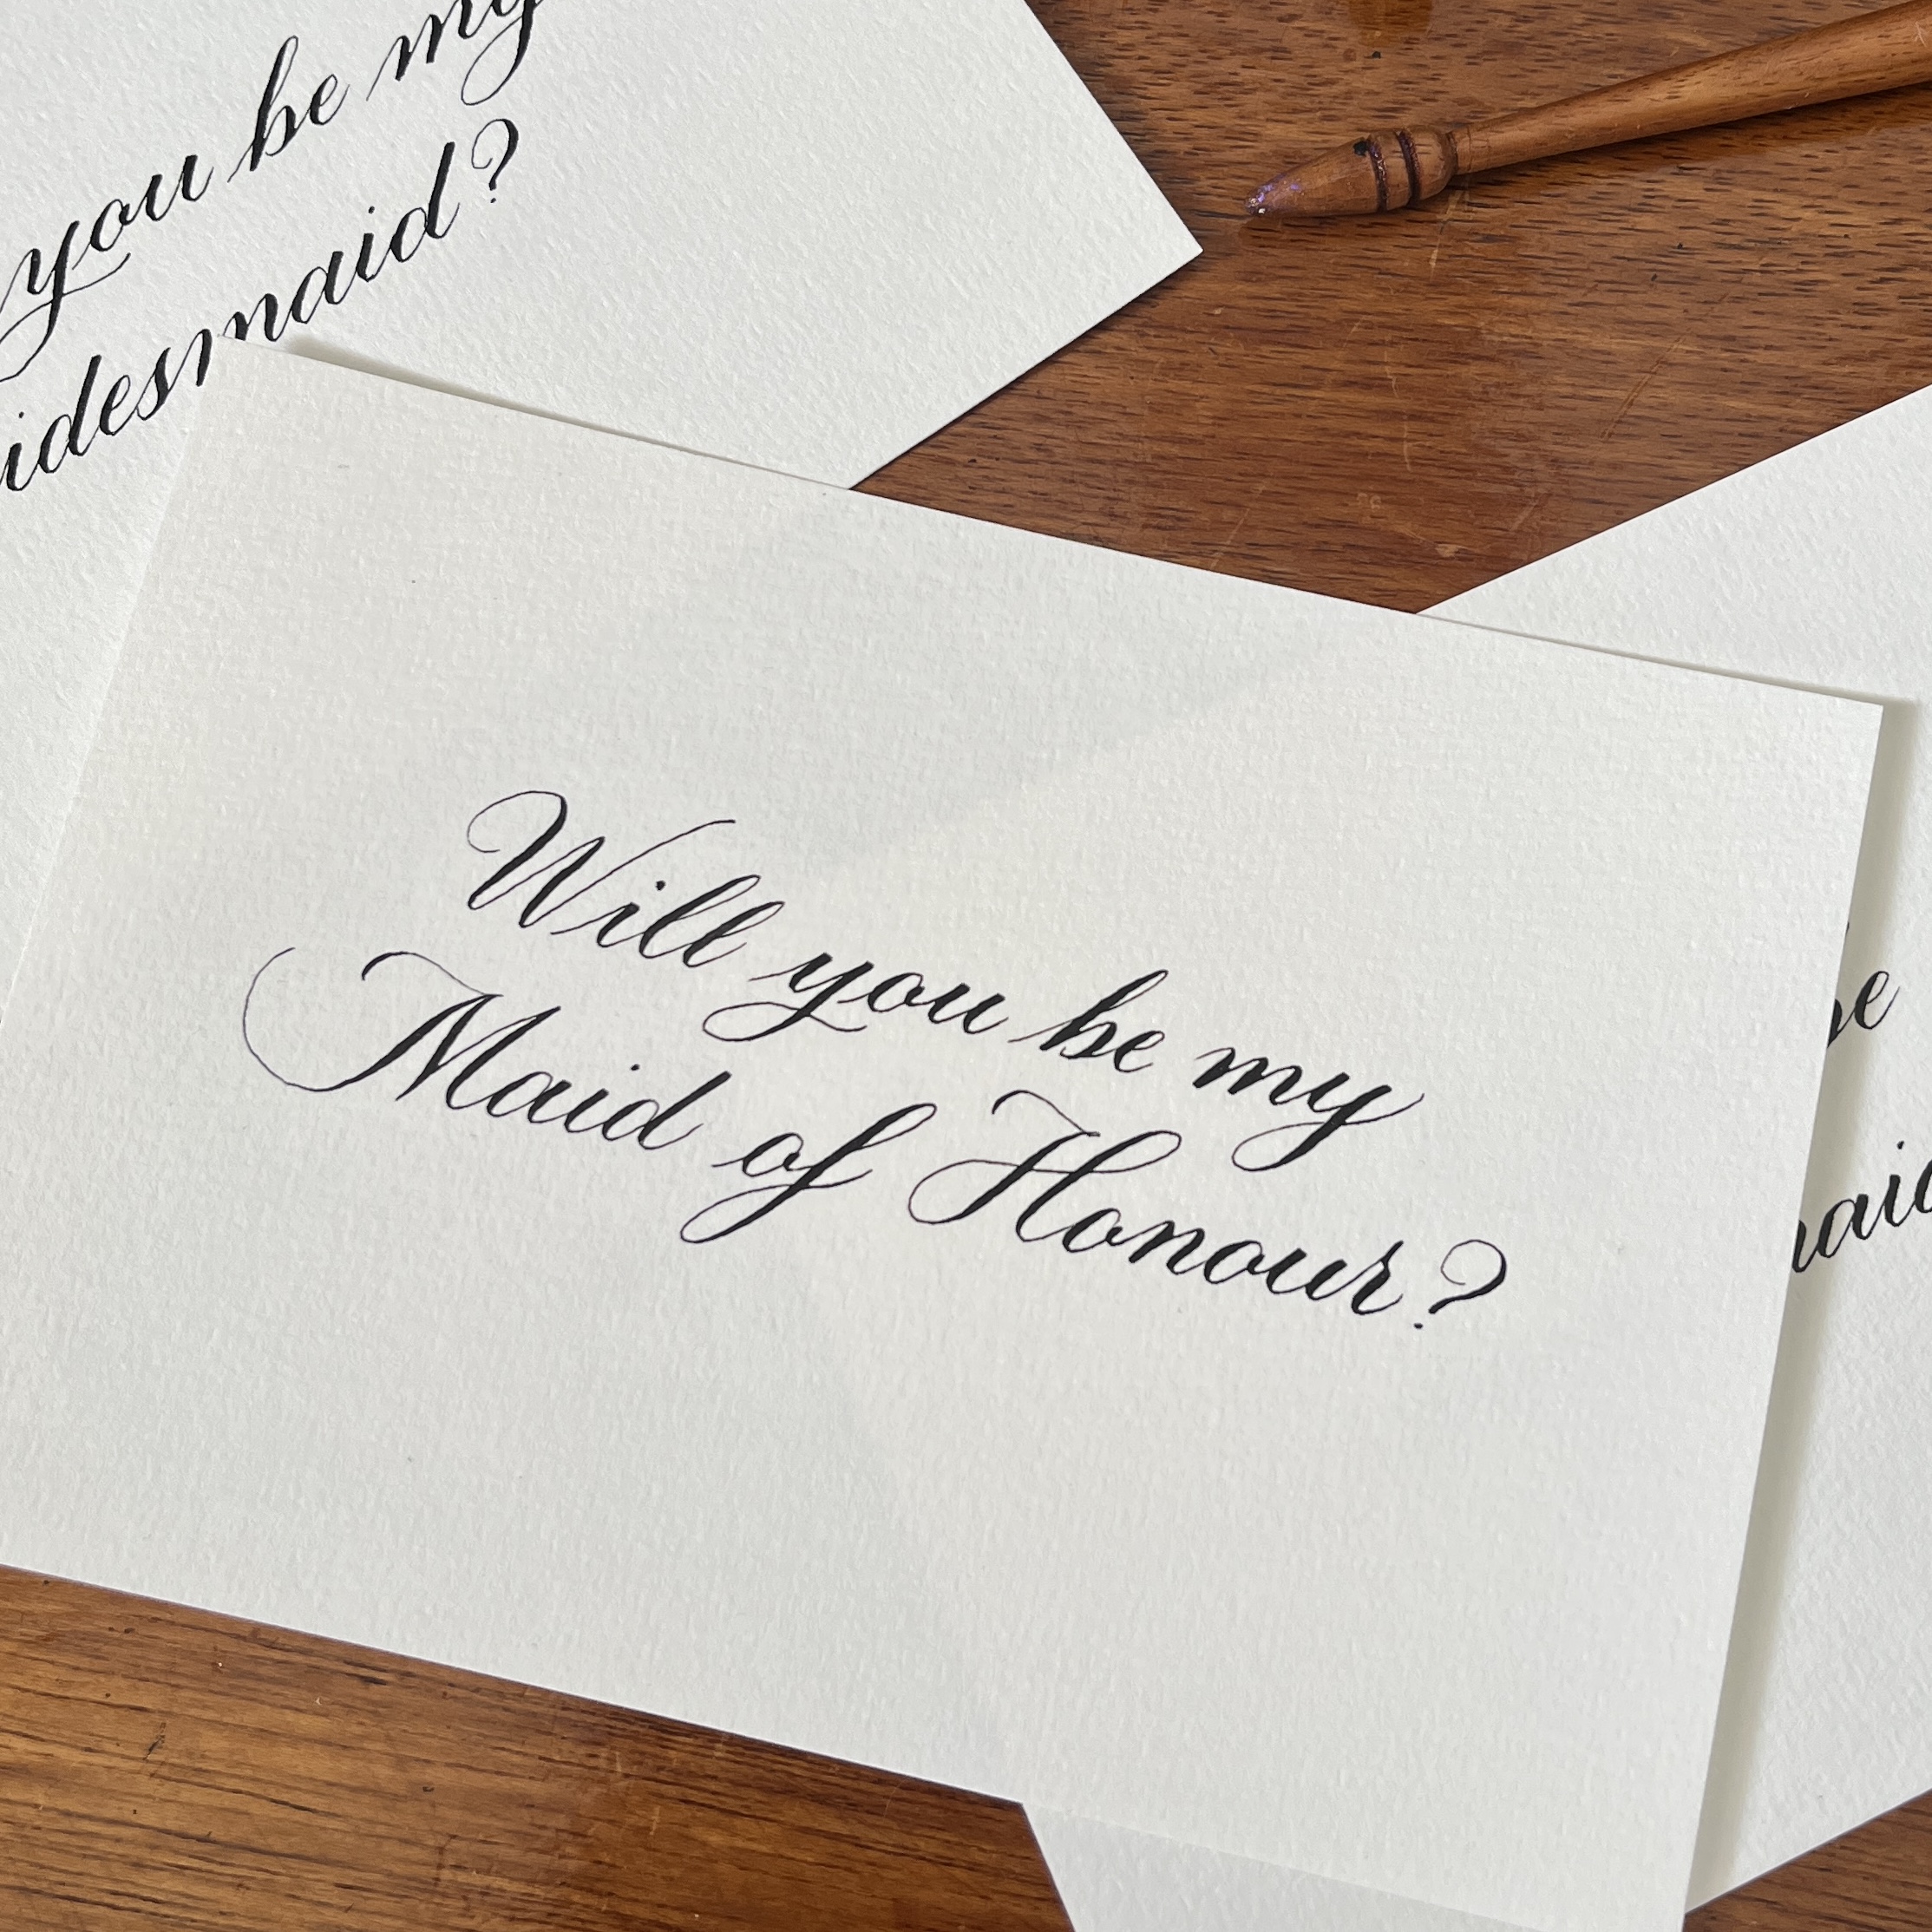 you be my
bridesmaid?
Will you be my
Maid of Honour?
be